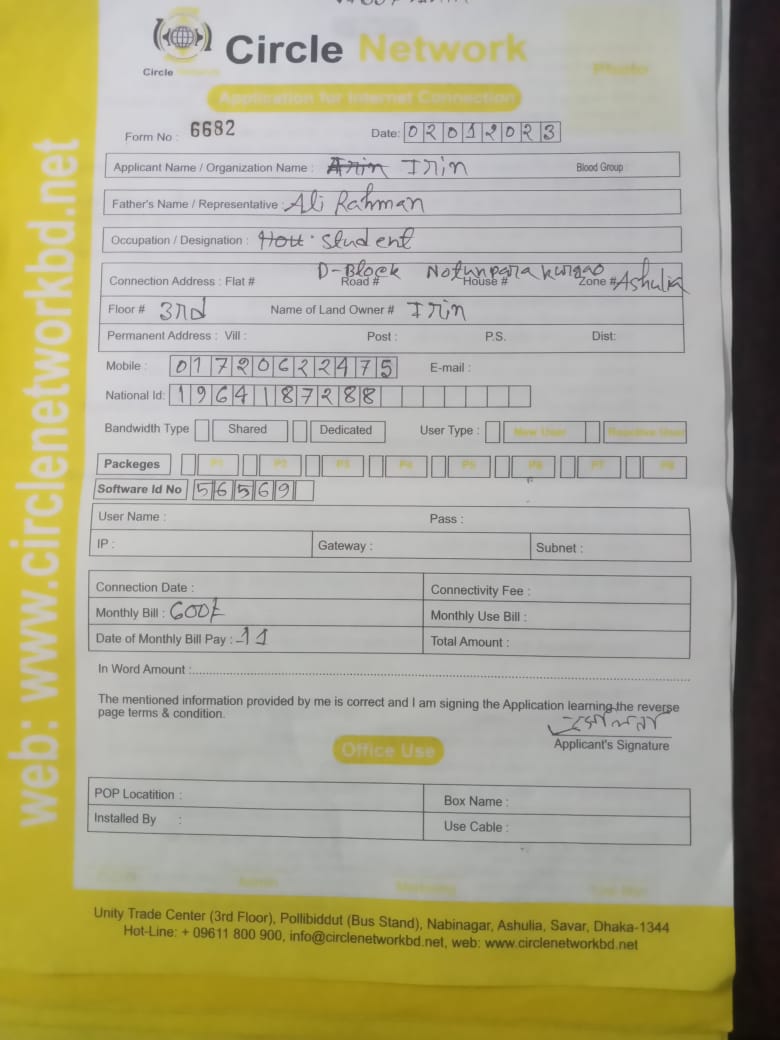 Circle Network
Circle Network
Application for Internet Connection
Photo
Form No : 6682
Date: 02012023
Applicant Name / Organization Name : Arin Irin Blood Group :
Father's Name / Representative : Ali Rahman
Occupation / Designation : Hou. Student
Connection Address : Flat # D-Block Road # Notunpara House # Kurgao Zone # Ashulia
Floor # 3rd Name of Land Owner # Irin
Permanent Address : Vill : Post : P.S. Dist:
Mobile : 01720622475 E-mail :
National Id: 1964187288
Bandwidth Type Shared Dedicated User Type : New User Reactive User
Packeges P1 P2 P3 P4 P5 P6 P7 P8
Software Id No 56569
User Name : Pass :
IP : Gateway : Subnet :
Connection Date : Connectivity Fee :
Monthly Bill : 600/- Monthly Use Bill :
Date of Monthly Bill Pay : 11 Total Amount :
In Word Amount :
The mentioned information provided by me is correct and I am signing the Application learning the reverse
page terms & condition.
Applicant's Signature
Office Use
POP Locatition : Box Name :
Installed By : Use Cable :
Marketing
Unity Trade Center (3rd Floor), Pollibiddut (Bus Stand), Nabinagar, Ashulia, Savar, Dhaka-1344
Hot-Line: + 09611 800 900, info@circlenetworkbd.net, web: www.circlenetworkbd.net
web: www.circlenetworkbd.net